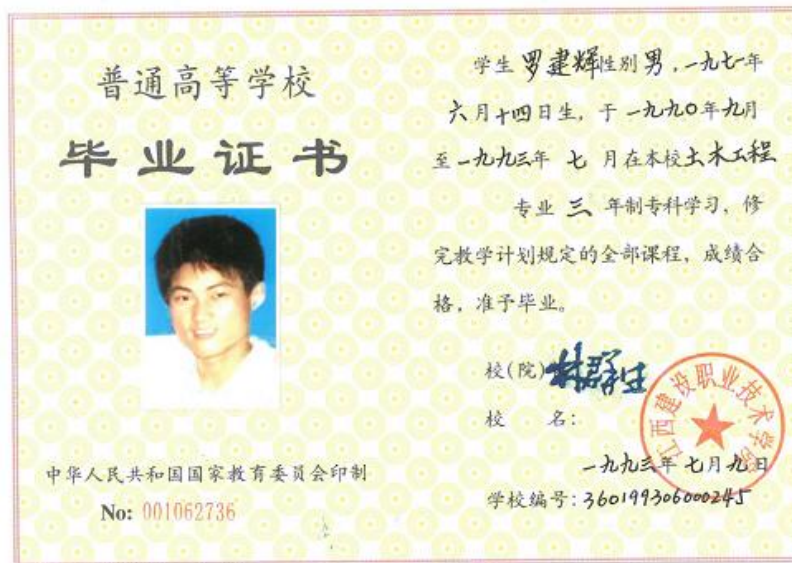 普通高等学校
毕业证书
中华人民共和国国家教育委员会印制
No: 001062736
学生 罗建辉 性别 男，一九七一年
六月十四日生，于一九九〇年九月
至一九九三年 七 月在本校土木工程
专业 三 年制专科学习，修
完教学计划规定的全部课程，成绩合
格，准予毕业。
校(院) 林群生
校 名：
江西建设职业技术学院
一九九三年七月九日
学校编号：360199306000245